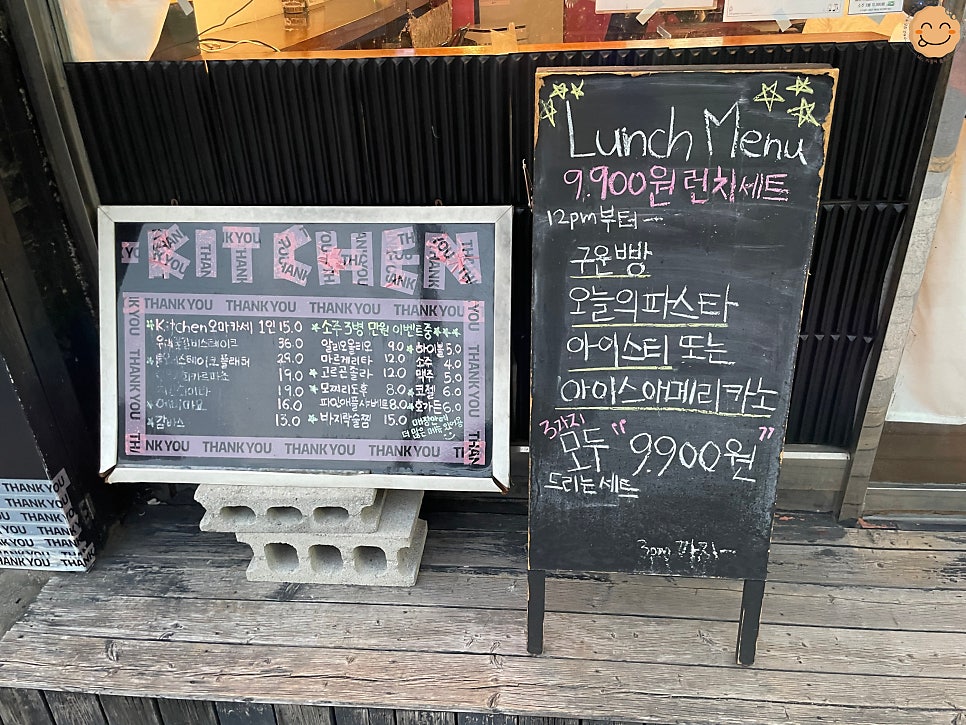 KITCHEN
THANK YOU THANK YOU THANK YOU THANK YOU
Kitchen오마카세 1인 15.0
36.0
29.0
19.0
19.0
16.0
감바스 15.0
소주 3병 만원 이벤트중
알리오올리오 9.0
마르게리타 12.0
고르곤졸라 12.0
모찌리도후 8.0
파인애플샤베트 8.0
바지락술찜 15.0
하이볼 5.0
소주 4.0
맥주 5.0
코젤 6.0
호가든 6.0
매장안에
더 많은 메뉴 있어용
THANK YOU
THANK YOU
NK YOU THANK YOU THANK YOU THANK YOU
THANK YOU
THANK YOU
THANK YOU
THANK YOU
THANK YOU
THANK YOU
Lunch Menu
9.900원 런치세트
12pm부터~
구운빵
오늘의파스타
아이스티 또는
아이스아메리카노
3가지
모두 "9.900원"
드리는세트
3pm 까지~